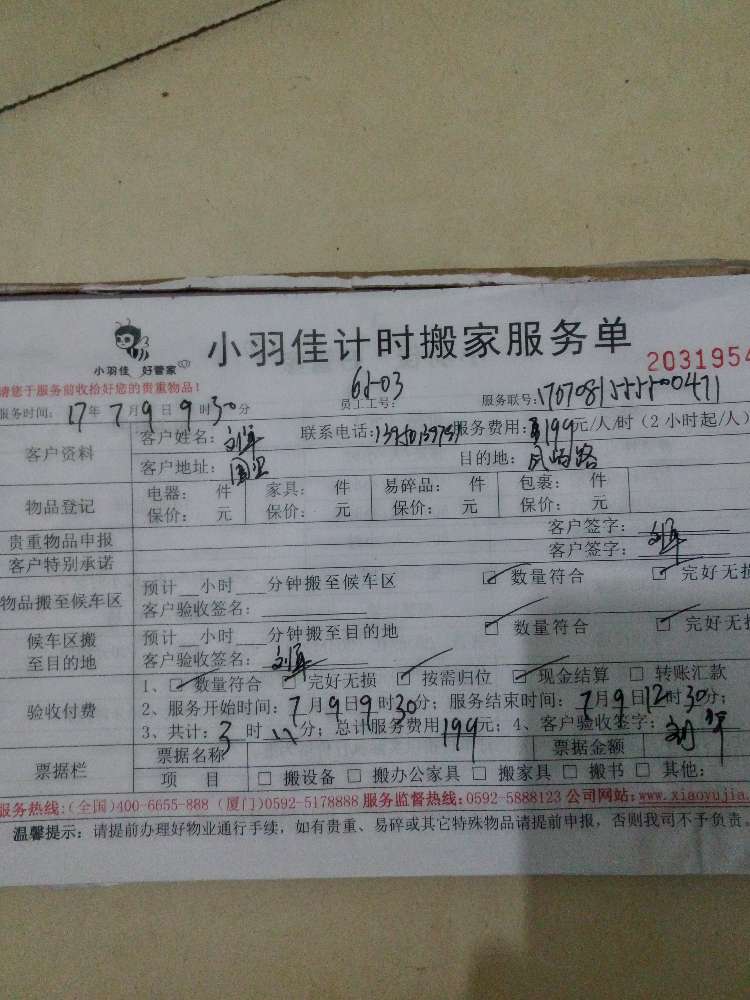 小羽佳 好管家
小羽佳计时搬家服务单
2031954
请您于服务前收拾好您的贵重物品！
服务时间：17年7月9日9时30分 员工工号：61-03 服务联号：
客户资料 客户姓名： 联系电话： 服务费用：199元/人/时（2小时起/人）
客户地址： 目的地：
物品登记 电器： 件 家具： 件 易碎品： 件 包裹： 件
保价： 元 保价： 元 保价： 元 保价： 元
贵重物品申报 客户签字：
客户特别承诺 客户签字：
物品搬至候车区 预计__小时___分钟搬至候车区 数量符合 完好无损
客户验收签名：
候车区搬至目的地 预计__小时___分钟搬至目的地 数量符合 完好无损
客户验收签名：
验收付费 1、数量符合 完好无损 按需归位 现金结算 □ 转账汇款
2、服务开始时间：7月9日9时30分；服务结束时间：7月9日12时30分；
3、共计：3时 分；总计服务费用199元；4、客户验收签字：
票据栏 票据名称 票据金额
项 目 □ 搬设备 □ 搬办公家具 □ 搬家具 □ 搬书 □ 其他：
服务热线：（全国）400-6655-888（厦门）0592-5178888 服务监督热线：0592-5888123 公司网站：www.xiaoyujia.
温馨提示：请提前办理好物业通行手续，如有贵重、易碎或其它特殊物品请提前申报，否则我司不予负责。